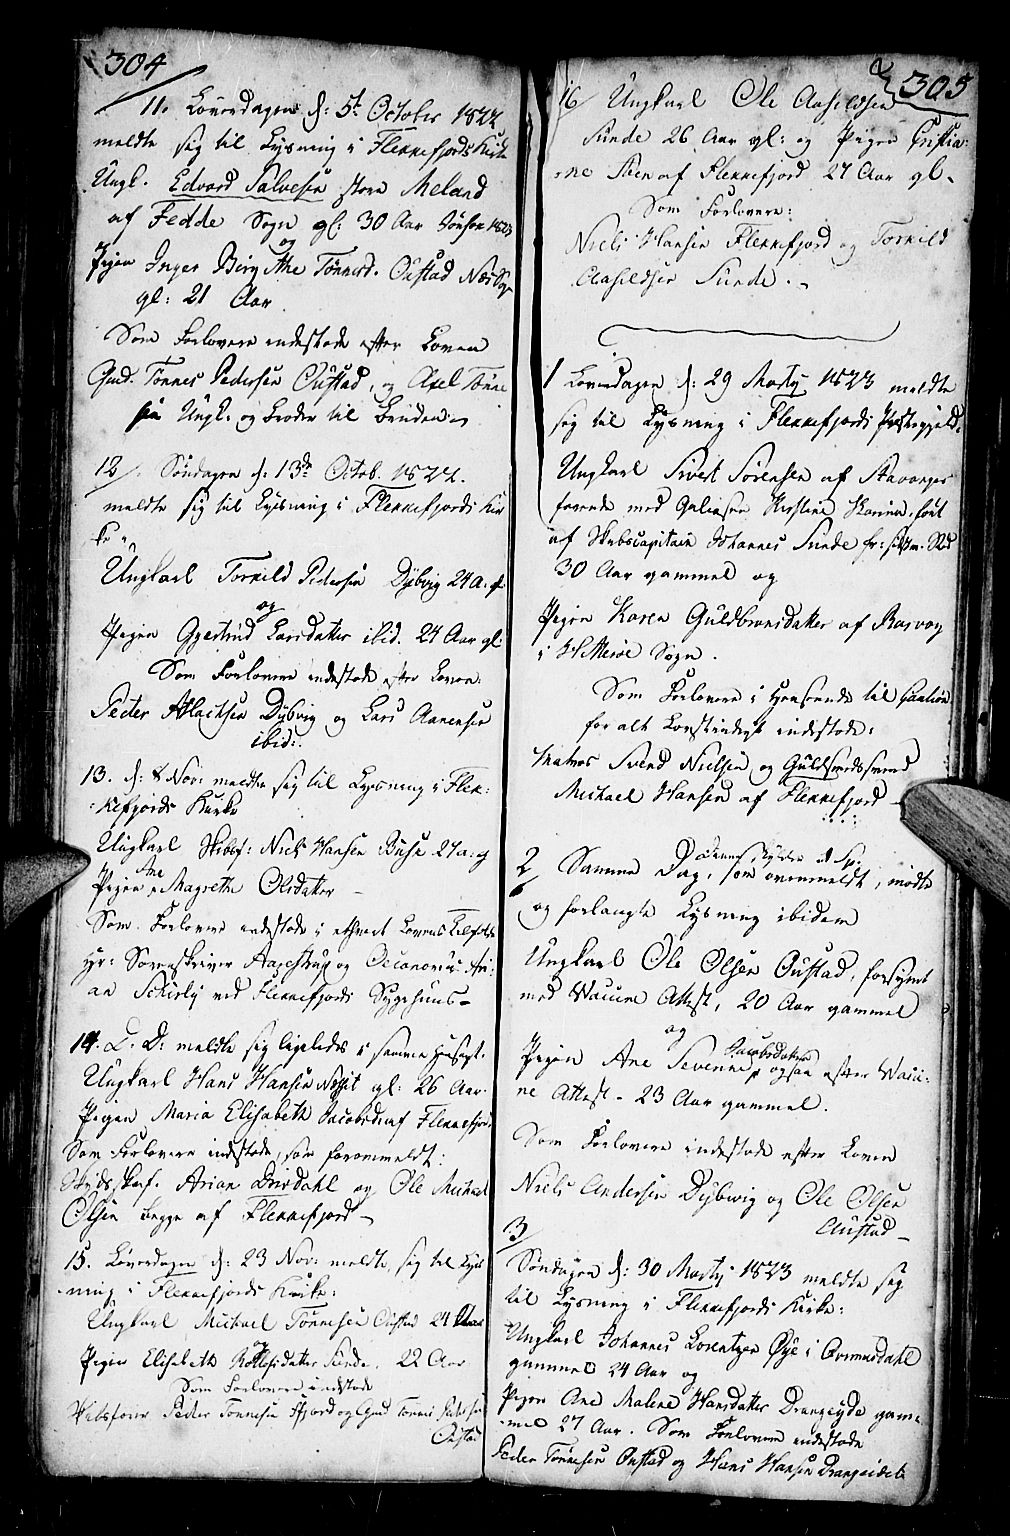 304
11. Løverdagen d: 5te October 1822
meldte sig til Lysning i Flekkefjords Kirke
Ungk. Edvard Salvesen store Meland
af Fedde Sogn gl: 30 Aar
og
Pigen Inger Birgithe Tønnesd. Oustad Næs Sogn
gl: 21 Aar
Som Forlovere indestode efter Loven
Gmd. Tønnes Pedersen Oustad, og Axel Tønne
sen Ungk. og Broder til Bruden
12/. Søndagen d: 13de Octob. 1822.
meldte sig til Lysning i Flekkefjords Kir
ke
Ungkarl Torkild Pedersen Dybvig 24 A: gl
og
Pigen Gjertrud Larsdatter ibid. 24 Aar gl:
Som Forlovere indestode efter Loven
Peder Atlaksen Dybvig og Lars Aanensen
ibid:
13. d: 8 Nov: meldte sig til Lysning i Flek:
kefjords Kirke
Ungkarl Skibsf: Niels Hansen Buse 27 a: og
Pigen Ane Magrethe Olsdatter
Som Forlovere indestode i ethvert Lovens Tilfælde
Hr: Sorenskriver Aagestrup og Oeconomus Ari
an Schirly ved Flekkefjords Sygehuus
14. L. D: meldte sig ligeledes i samme Hensigt.
Ungkarl Hans Hansen gl: 26 Aar
Pigen Maria Elisabeth Jacobsd: af Flekkefjord
Som Forlovere indestode, som forommeldt:
Arian Drivdahl og Ole Michael
Olsen begge af Flekkefjord
15. Løverdagen d: 23 Nov: meldte sig til Lys
ning i Flekkefjords Kirke:
Ungkarl Michael Tønnesen Oustad 24 Aar
og
Pigen Elisabeth Sunde, 22 Aar
Som Forlovere indestode
Peder Tønnesen og Gmd Tønnes Pedersen
Oustad
305
16/ Ungkarl Ole Aasildsen
Sunde 26 Aar gl: og Pigen Cristia:
ne Steen af Flekkefjord 27 Aar gl
Som Forlovere:
Niels Hansen Flekkefjord og Torkild
Aasildsen Sunde.
1 Løverdagen d: 29 Martz 1823 meldte
sig til Lysning i Flekkefjords Præstegjeld.
Ungkarl Sivert Sørensen af Stavanger
farende med Galeasen Kirstine Karine, ført
af Skibscapitain Johannes Sunde
30 Aar gammel og
Pigen Karen Guldbransdatter af Rasvog
i Hitterøe Sogn.
Som Forlovere i Henseende til
for alt Lovstridigt indestode:
Matros Svend Nielsen og Guldsmedsvend
Michael Hansen af Flekkefjord
2/ Samme Dag, som ovenmeldt, mødte
og forlangte Lysning ibidem
Ungkarl Ole Olsen Oustad, forsynet
med Vaccine Attest, 20 Aar gammel
og
Pigen Ane Severine Jacobsdatter ogsaa efter Vacci:
ne Attest - 23 Aar gammel.
Som Forlovere indestode efter Loven
Niels Andersen Dybwig og Ole Olsen
Austad
3/
Søndagen d: 30 Martz 1823 meldte sig
til Lysning i Flekkefjords Kirke:
Ungkarl Johannes Lorentzen Øye i Qvinesdahl
gammel 24 Aar og
Pigen Ane Malene Hansdatter Drangeyde gam:
mel 27 Aar. Som Forlovere indestode
Peder Tønnesen Oustad og Hans Hansen Drangeidet